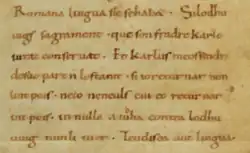 Romana lingua sic se habet. Silodhu
uigs sagrament. que son fradre karlo
iurat conseruat. Et karlus meossendra
desuo part n̄ lostanit. si io returnar non
lint pois. neio neneuls cui eo returnar
int pois. in nulla aiudha contra lodhu
uuig nunli iuer. Teudisca aut lingua.